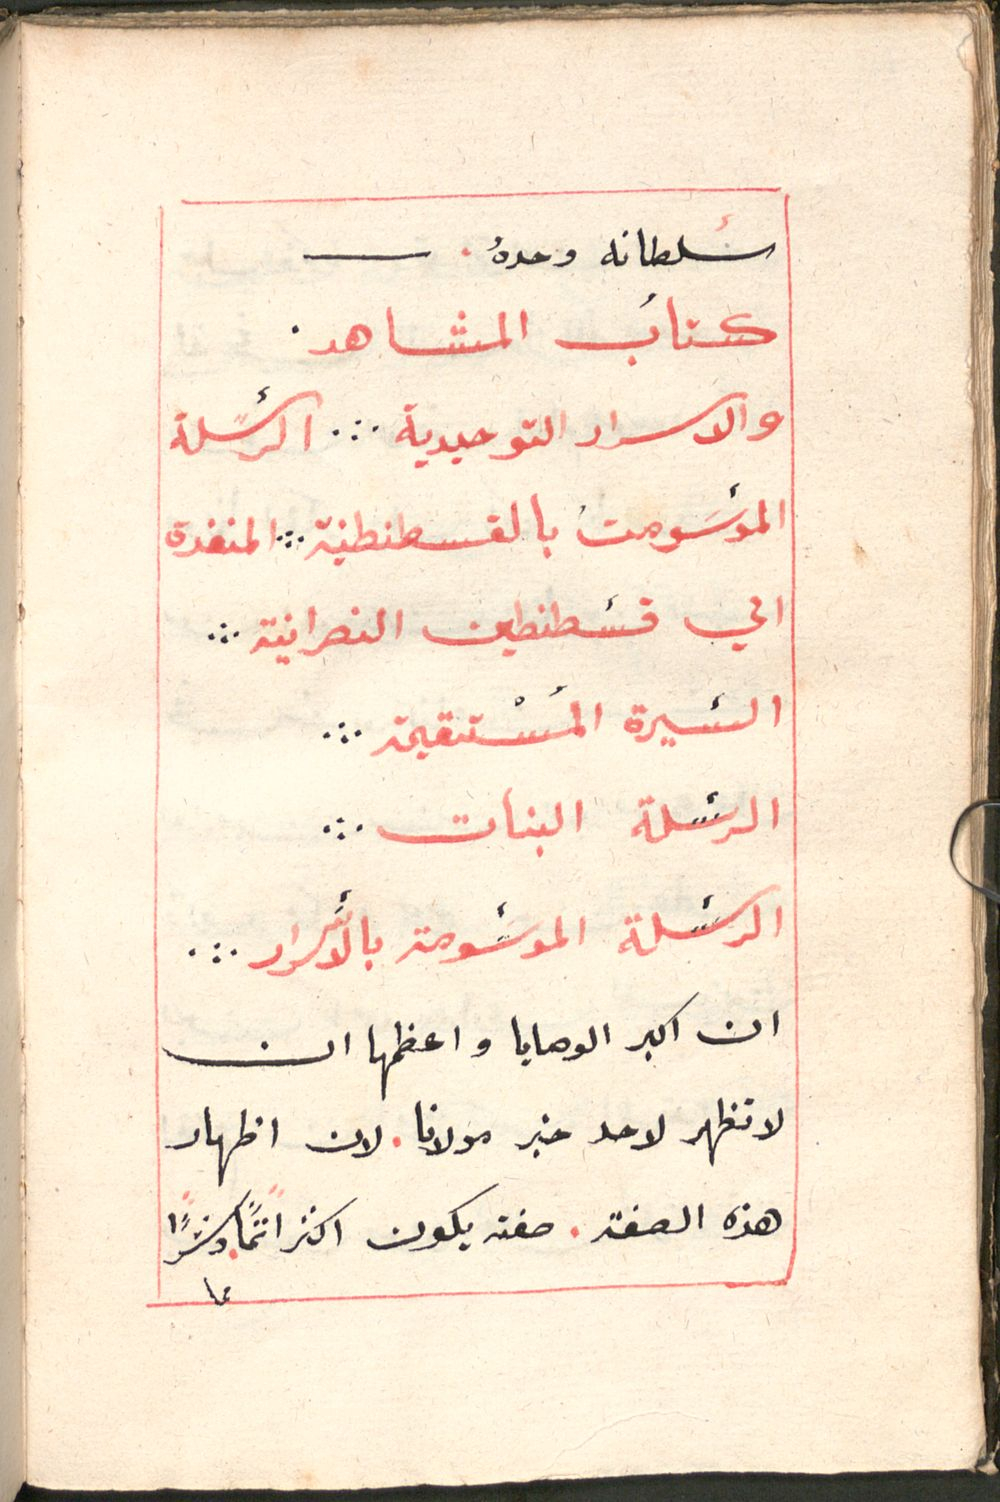 سُلطانه وحدهُ.
كتابُ المشاهد.
والاسرار التوحيدية ∴ الرسَّلة
الموسَومتُ بالقسطنطنية ∴ المنفدة
الي قسطنطين النصرانية ∴
السيرة المُسْتقيمة ∴
الرسلة البنات ∴
الرسلة الموسومة بالاسَّرار ∴
ان اكبر الوصايا واعظمها ان
لا تظهر لاحد خبر مولانا. لان اظهار
هذه الصفة. صفته يكون اكثر اثمًا. وشرًا